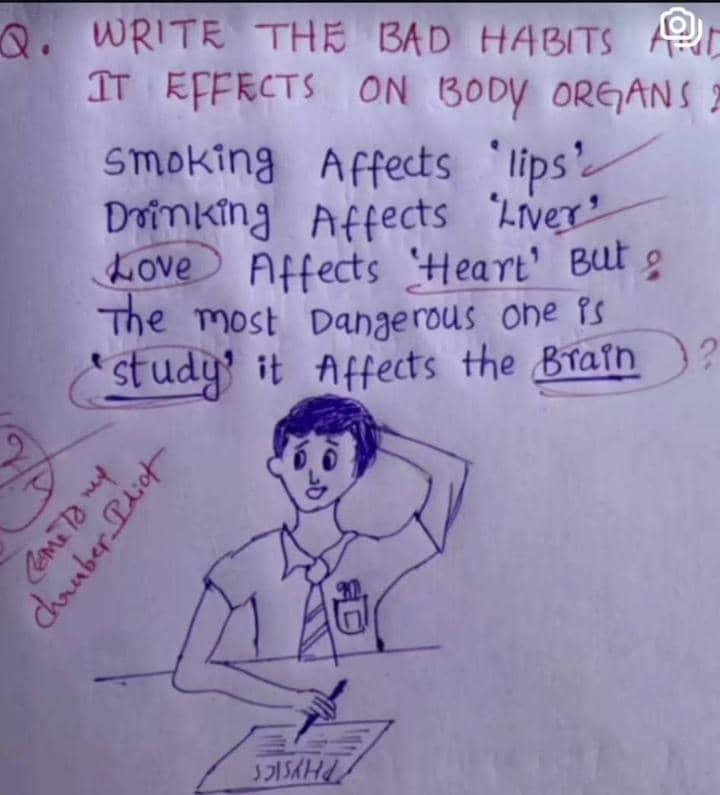 Q. WRITE THE BAD HABITS AND
IT EFFECTS ON BODY ORGANS ?
Smoking Affects 'lips'
Drinking Affects 'Liver'
Love Affects 'Heart' But
The most Dangerous one is
'study' it Affects the Brain ?
2/5
Come To my
chamber Idiot
PHYSICS